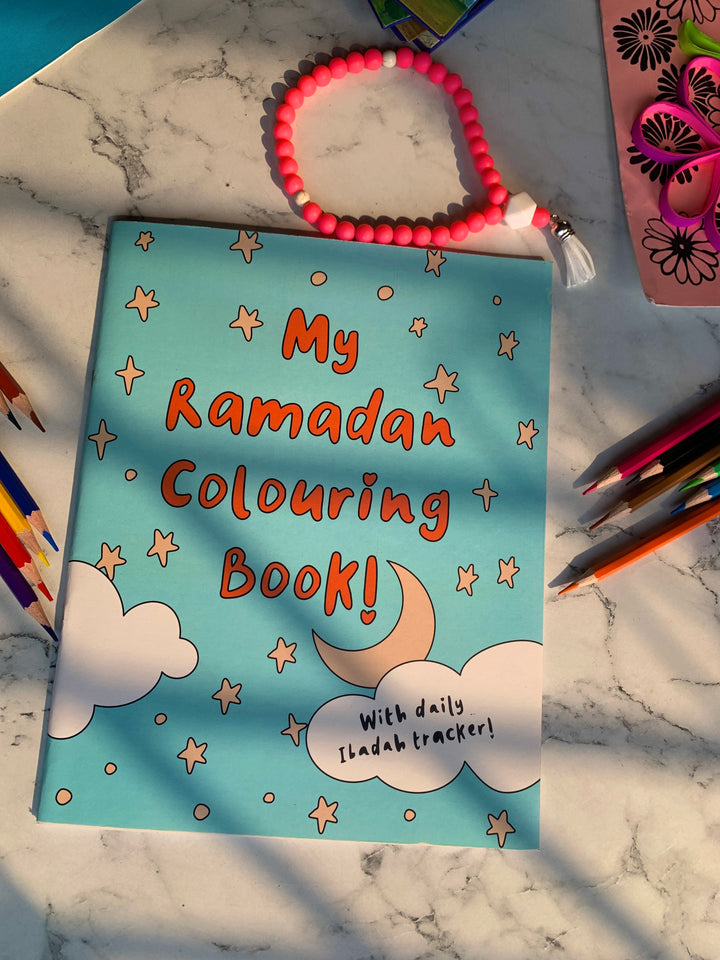 My
Ramadan
Colouring
Book!
With daily
Ibadah tracker!